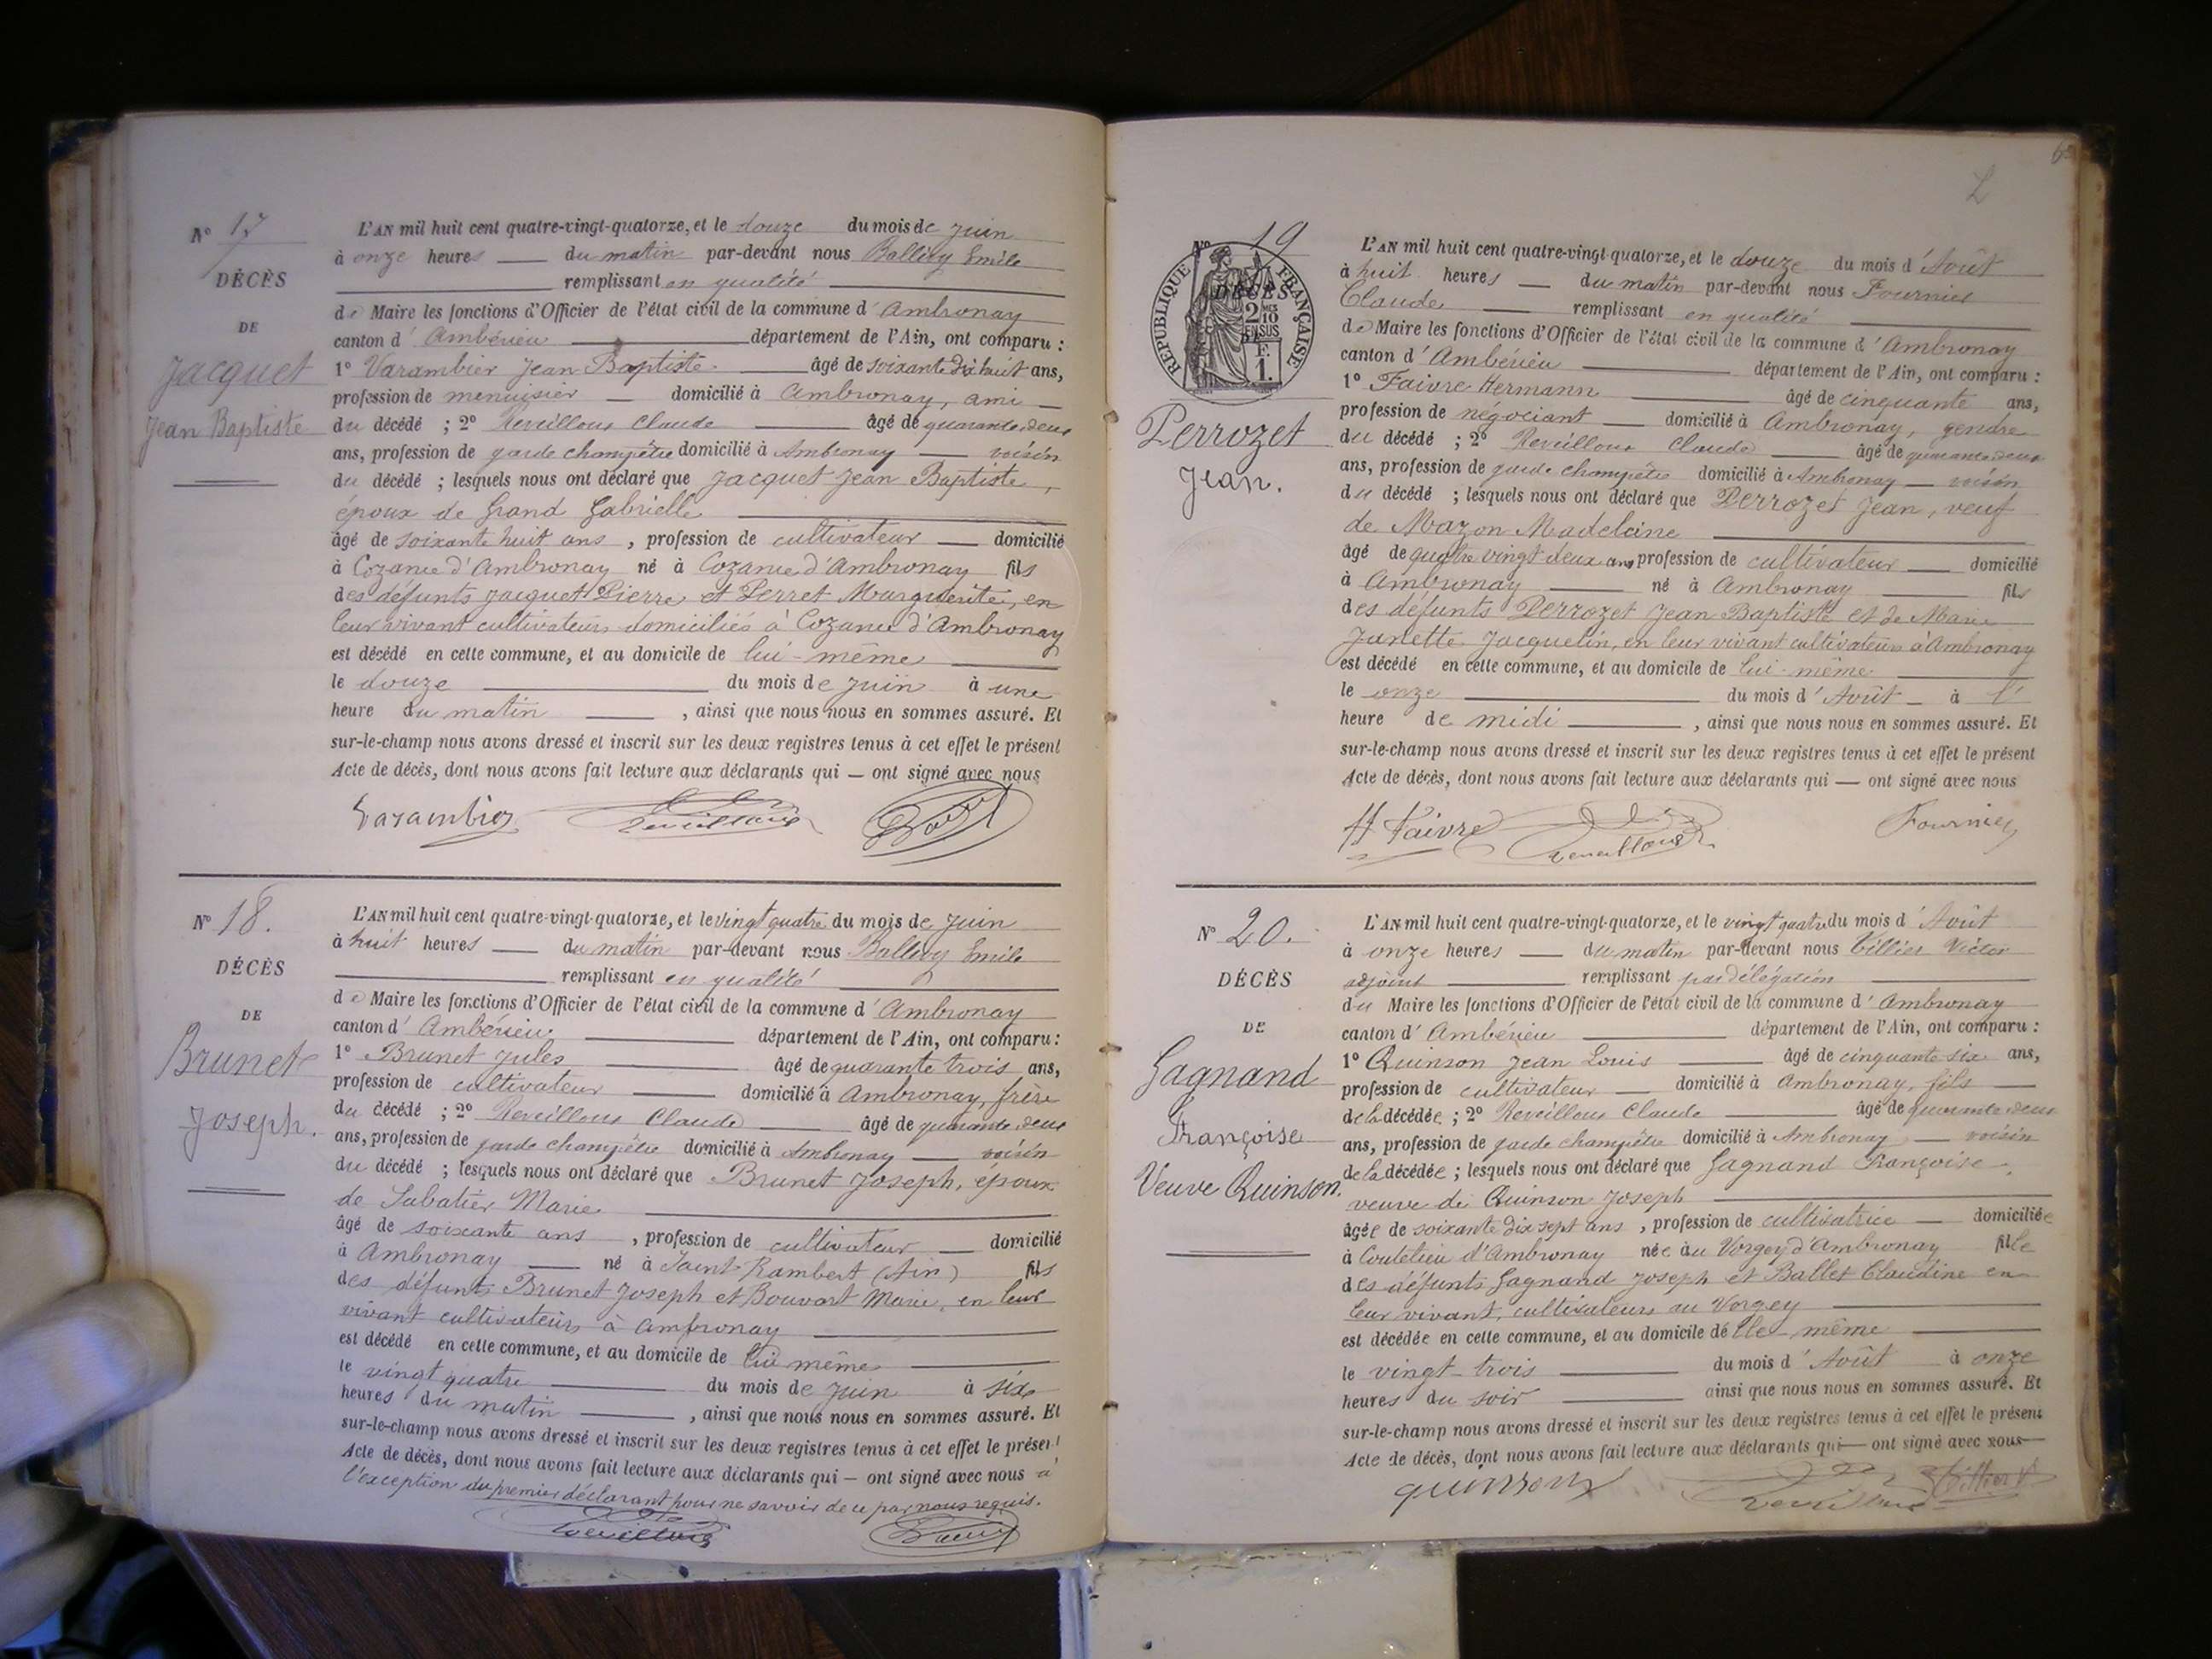 N° 17
DÉCÈS
DE
Jacquet
Jean Baptiste
L'AN mil huit cent quatre-vingt-quatorze, et le douze du mois de juin
à onze heures — du matin par-devant nous Ballivy Emile
remplissant en qualité
de Maire les fonctions d'Officier de l'état civil de la commune d'Ambronay
canton d'Ambérieu département de l'Ain, ont comparu :
1° Varambier Jean Baptiste âgé de soixante dix huit ans,
profession de menuisier — domicilié à Ambronay, ami —
du décédé ; 2° Reveilloux Claude âgé de quarante deux
ans, profession de garde champêtre domicilié à Ambronay — voisin
du décédé ; lesquels nous ont déclaré que Jacquet Jean Baptiste,
époux de Grand Gabrielle
âgé de soixante huit ans, profession de cultivateur — domicilié
à Cozance d'Ambronay né à Cozance d'Ambronay fils
des défunts Jacquet Pierre et Perret Marguerite, en
leur vivant cultivateurs domiciliés à Cozance d'Ambronay
est décédé en cette commune, et au domicile de lui-même
le douze du mois de juin à une
heure du matin, ainsi que nous nous en sommes assuré. Et
sur-le-champ nous avons dressé et inscrit sur les deux registres tenus à cet effet le présent
Acte de décès, dont nous avons fait lecture aux déclarants qui — ont signé avec nous
Varambier Reveilloux
N° 18.
DÉCÈS
DE
Brunet
Joseph.
L'AN mil huit cent quatre-vingt-quatorze, et le vingt quatre du mois de juin
à huit heures — du matin par-devant nous Ballivy Emile
remplissant en qualité
de Maire les fonctions d'Officier de l'état civil de la commune d'Ambronay
canton d'Ambérieu département de l'Ain, ont comparu :
1° Brunet Jules âgé de quarante trois ans,
profession de cultivateur domicilié à Ambronay, frère
du décédé ; 2° Reveilloux Claude âgé de quarante deux
ans, profession de garde champêtre domicilié à Ambronay — voisin
du décédé ; lesquels nous ont déclaré que Brunet Joseph, époux
de Sabatier Marie
âgé de soixante ans, profession de cultivateur — domicilié
à Ambronay — né à Saint-Rambert (Ain) fils
des défunts Brunet Joseph et Bouvart Marie, en leur
vivant cultivateurs à Ambronay
est décédé en cette commune, et au domicile de lui même
le vingt quatre du mois de juin à six
heures du matin, ainsi que nous nous en sommes assuré. Et
sur-le-champ nous avons dressé et inscrit sur les deux registres tenus à cet effet le présent
Acte de décès, dont nous avons fait lecture aux déclarants qui — ont signé avec nous à
l'exception du premier déclarant pour ne savoir de ce par nous requis.
Reveilloux
N° 19
RÉPUBLIQUE FRANÇAISE
2/10 EN SUS
F. 1.
DÉCÈS
DE
Perrozet
Jean.
L'AN mil huit cent quatre-vingt-quatorze, et le douze du mois d'Août
à huit heures — du matin par-devant nous Fournier
Claude remplissant en qualité
de Maire les fonctions d'Officier de l'état civil de la commune d'Ambronay
canton d'Ambérieu département de l'Ain, ont comparu :
1° Faivre Hermann âgé de cinquante ans,
profession de négociant — domicilié à Ambronay, gendre
du décédé ; 2° Reveilloux Claude âgé de quarante deux
ans, profession de garde champêtre domicilié à Ambronay — voisin
du décédé ; lesquels nous ont déclaré que Perrozet Jean, veuf
de Mazon Madeleine
âgé de quatre vingt deux ans profession de cultivateur — domicilié
à Ambronay né à Ambronay fils
des défunts Perrozet Jean Baptiste et de Marie
Janette Jacquelin, en leur vivant cultivateurs à Ambronay
est décédé en cette commune, et au domicile de lui-même
le onze du mois d'Août — à l'
heure de midi, ainsi que nous nous en sommes assuré. Et
sur-le-champ nous avons dressé et inscrit sur les deux registres tenus à cet effet le présent
Acte de décès, dont nous avons fait lecture aux déclarants qui — ont signé avec nous
H Faivre Reveilloux Fournier
N° 20.
DÉCÈS
DE
Gagnand
Françoise
Veuve Quinson.
L'AN mil huit cent quatre-vingt-quatorze, et le vingt quatre du mois d'Août
à onze heures — du matin par-devant nous Cillier Victor
adjoint remplissant par délégation
du Maire les fonctions d'Officier de l'état civil de la commune d'Ambronay
canton d'Ambérieu département de l'Ain, ont comparu :
1° Quinson Jean Louis âgé de cinquante six ans,
profession de cultivateur — domicilié à Ambronay, fils —
de la décédée ; 2° Reveilloux Claude âgé de quarante deux
ans, profession de garde champêtre domicilié à Ambronay — voisin
de la décédée ; lesquels nous ont déclaré que Gagnand Françoise,
veuve de Quinson Joseph
âgée de soixante dix sept ans, profession de cultivatrice — domiciliée
à Coutelieu d'Ambronay née au Vorgey d'Ambronay fille
des défunts Gagnand Joseph et Ballet Claudine en
leur vivant, cultivateurs au Vorgey
est décédée en cette commune, et au domicile d'elle-même
le vingt-trois du mois d'Août à onze
heures du soir ainsi que nous nous en sommes assuré. Et
sur-le-champ nous avons dressé et inscrit sur les deux registres tenus à cet effet le présent
Acte de décès, dont nous avons fait lecture aux déclarants qui — ont signé avec nous
quinson Reveilloux